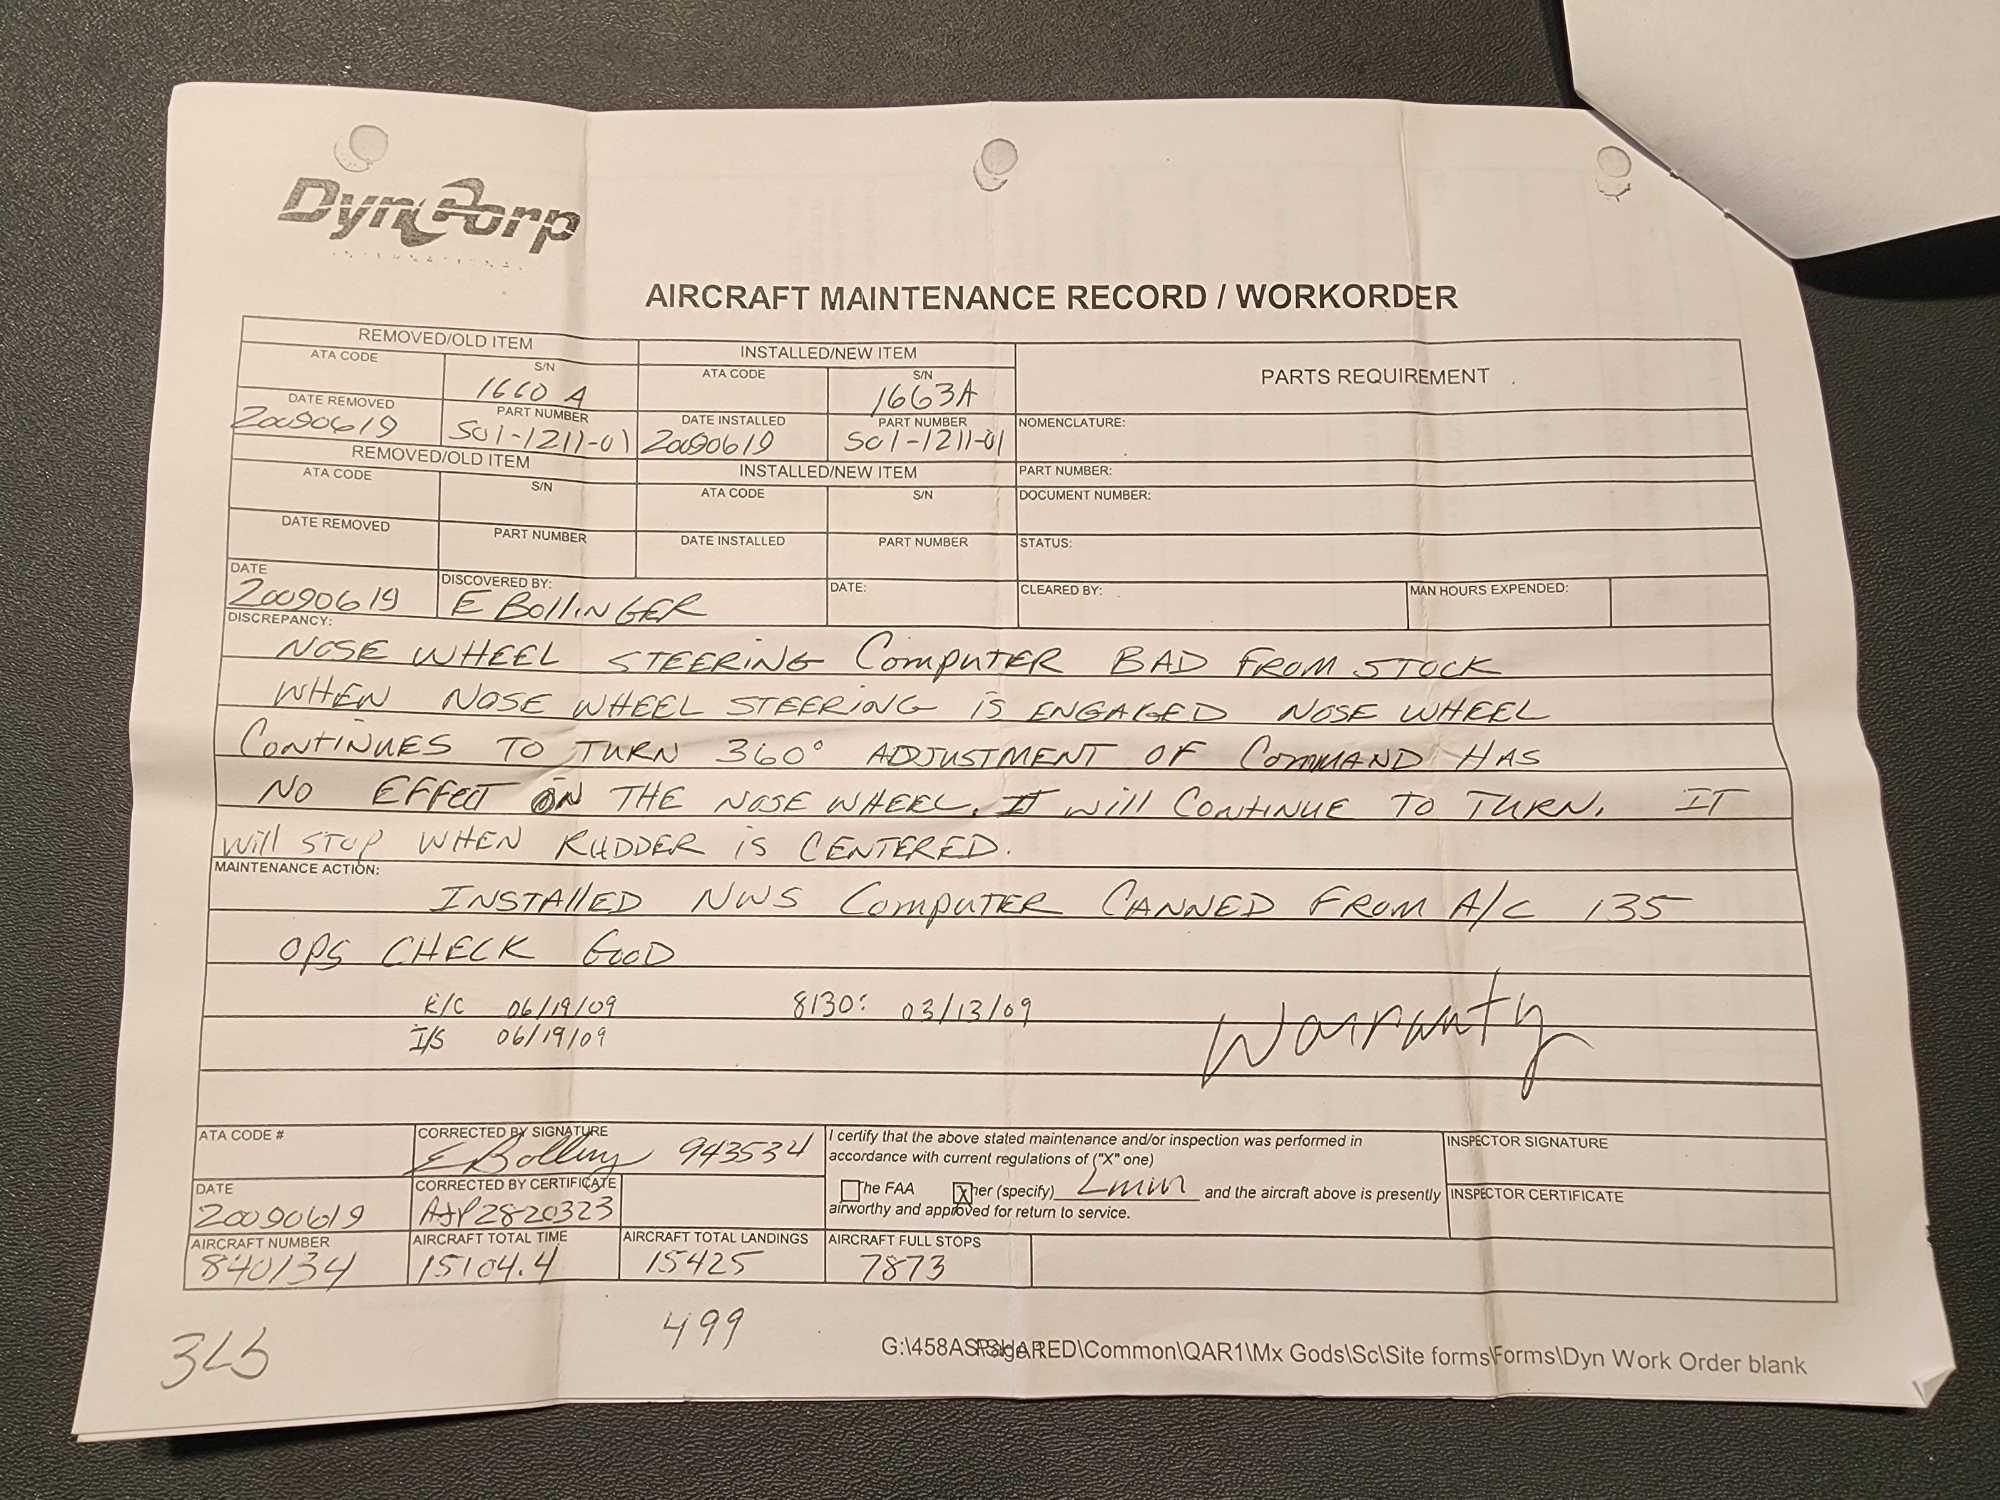 DynCorp
INTERNATIONAL
AIRCRAFT MAINTENANCE RECORD / WORKORDER
REMOVED/OLD ITEM INSTALLED/NEW ITEM PARTS REQUIREMENT
ATA CODE S/N 1660 A ATA CODE S/N 1663A
DATE REMOVED 20090619 PART NUMBER S01-1211-01 DATE INSTALLED 20090619 PART NUMBER S01-1211-01 NOMENCLATURE:
REMOVED/OLD ITEM INSTALLED/NEW ITEM PART NUMBER:
ATA CODE S/N ATA CODE S/N DOCUMENT NUMBER:
DATE REMOVED PART NUMBER DATE INSTALLED PART NUMBER STATUS:
DATE 20090619 DISCOVERED BY: E BOLLINGER DATE: CLEARED BY: MAN HOURS EXPENDED:
DISCREPANCY:
NOSE WHEEL STEERING COMPUTER BAD FROM STOCK
WHEN NOSE WHEEL STEERING IS ENGAGED NOSE WHEEL
CONTINUES TO TURN 360° ADJUSTMENT OF COMMAND HAS
NO EFFECT ON THE NOSE WHEEL. IT WILL CONTINUE TO TURN. IT
WILL STOP WHEN RUDDER IS CENTERED.
MAINTENANCE ACTION:
INSTALLED NWS COMPUTER CANNED FROM A/C 135
OPS CHECK GOOD
R/C 06/19/09 8130: 03/13/09 Warranty
I/S 06/19/09
ATA CODE # CORRECTED BY SIGNATURE E Bolling 943534 I certify that the above stated maintenance and/or inspection was performed in INSPECTOR SIGNATURE
accordance with current regulations of ("X" one)
DATE 20090619 CORRECTED BY CERTIFICATE The FAA X her (specify) and the aircraft above is presently INSPECTOR CERTIFICATE
airworthy and approved for return to service.
AIRCRAFT NUMBER 840134 AIRCRAFT TOTAL TIME 15104.4 AIRCRAFT TOTAL LANDINGS 15425 AIRCRAFT FULL STOPS 7873
499
G:\458ASPSHARED\Common\QAR1\Mx Gods\Sc\Site forms\Forms\Dyn Work Order blank